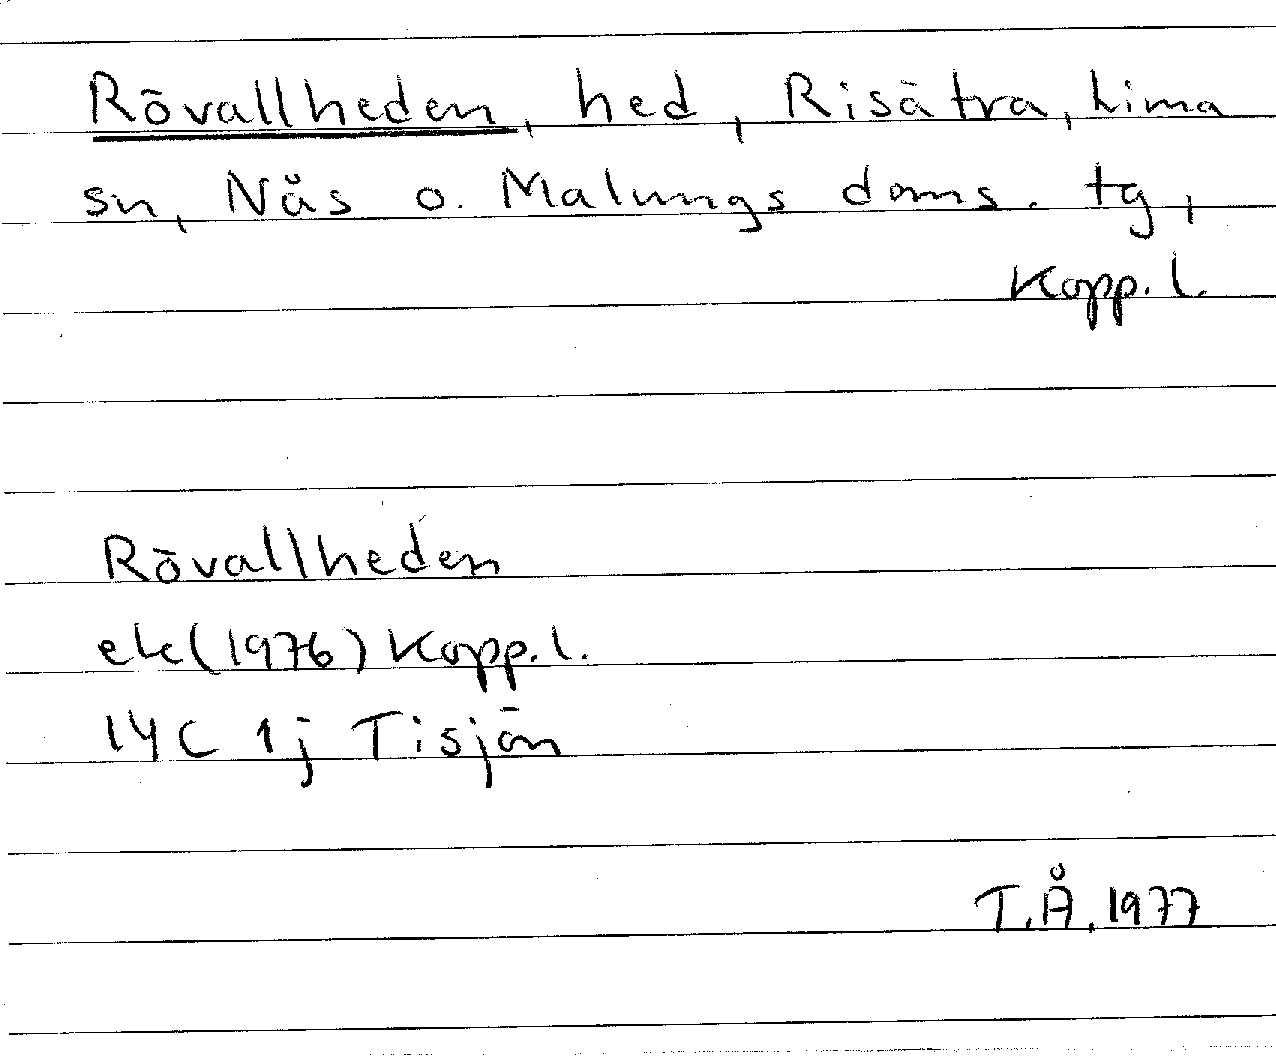 Rövallheden, hed, Risätra, Lima
sn, Nås o. Malungs doms. tg,
Kopp. l.
Rövallheden
ek (1976) Kopp. l.
14C 1j Tisjön
T.Å. 1977